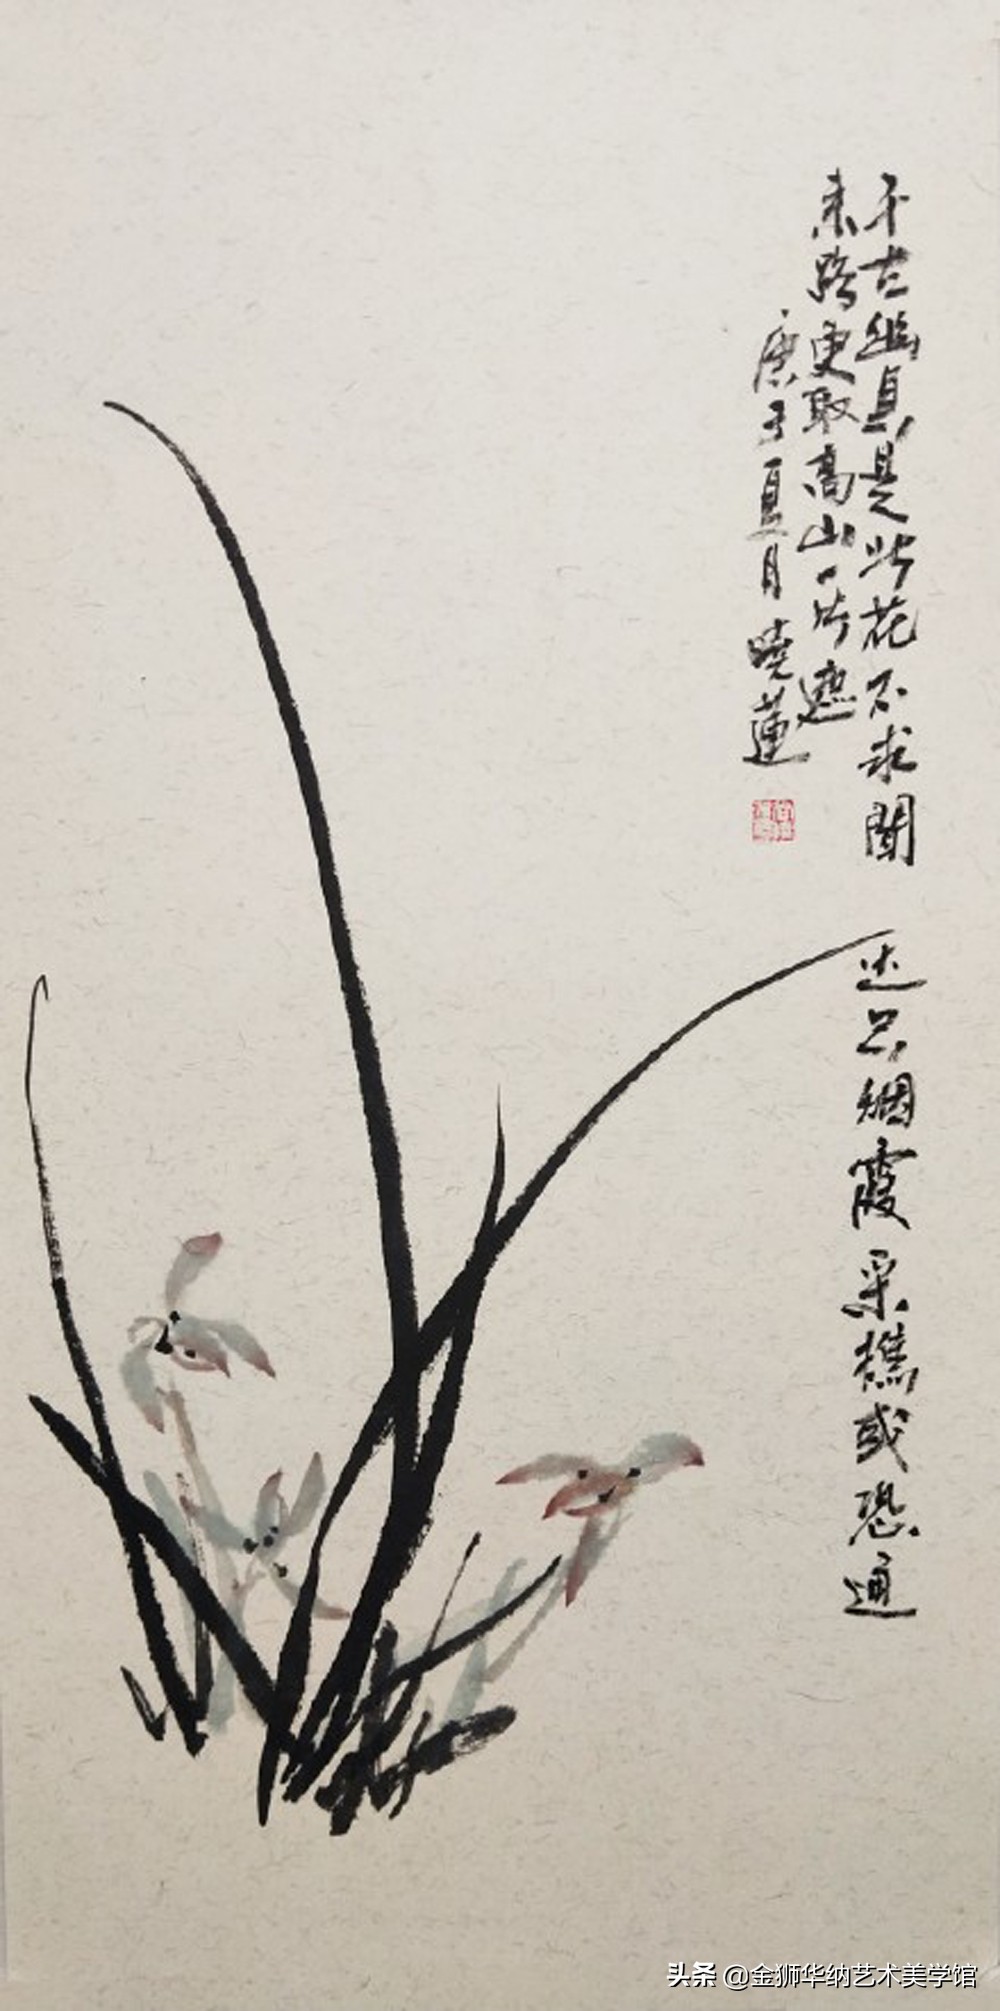 千古幽貞是此花不求聞达只烟霞采樵或恐通
来路更取高山一片遮
庚子夏月曉蓮
头条 @金狮华纳艺术美学馆